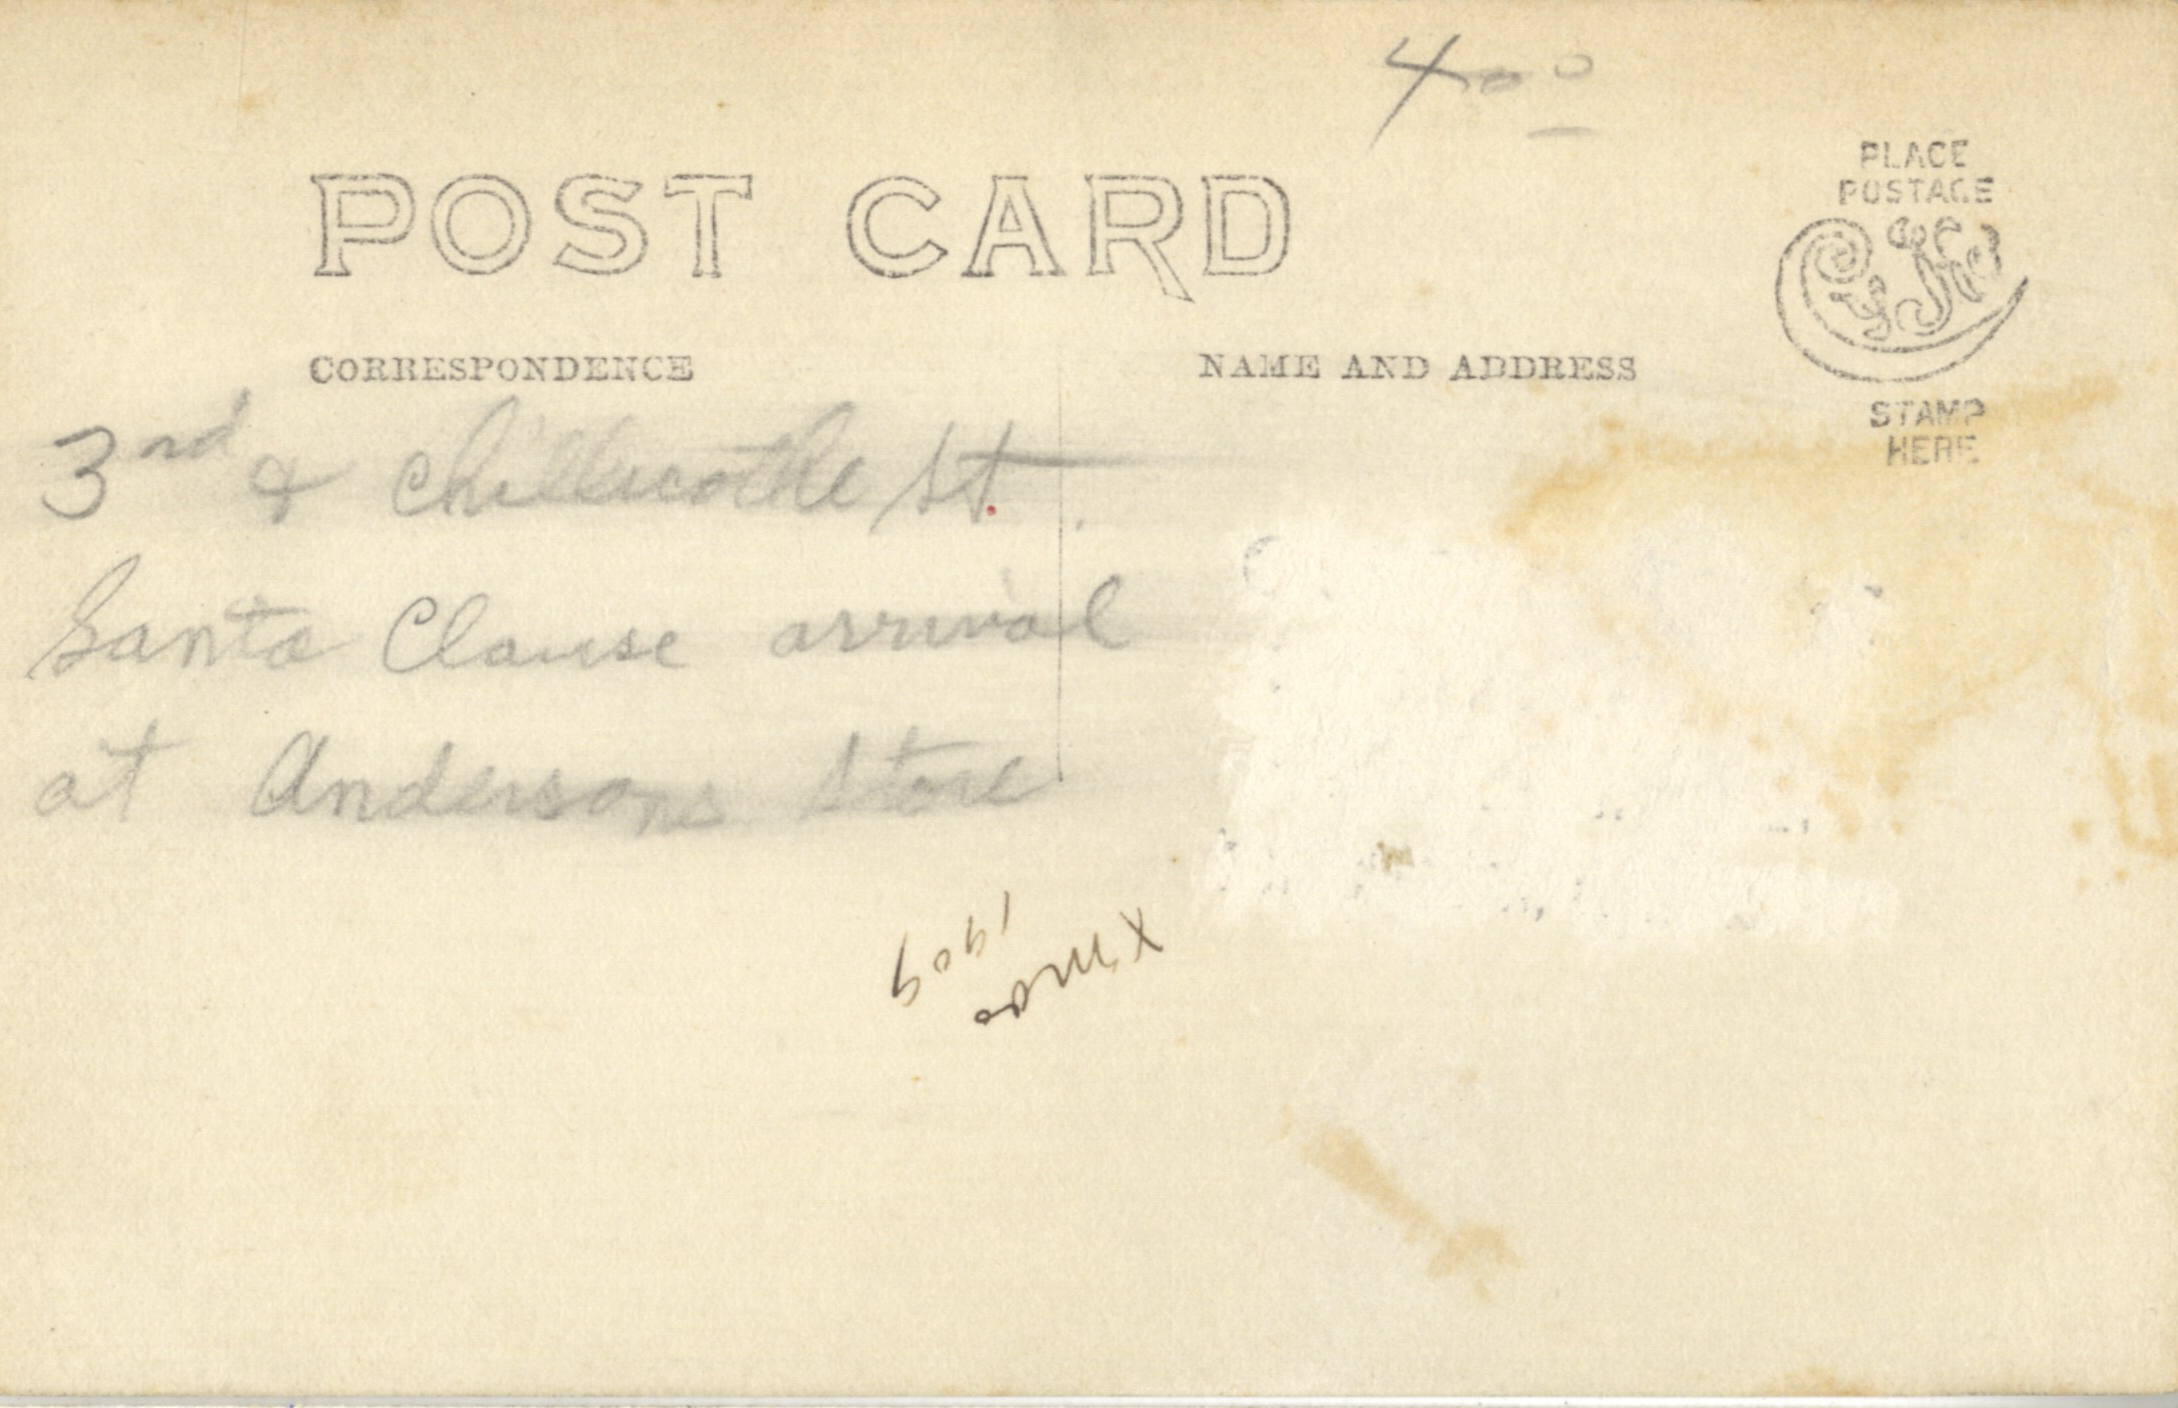 4 00
POST CARD
PLACE
POSTAGE
STAMP
HERE
CORRESPONDENCE
NAME AND ADDRESS
3rd & Chillicothe St.
Santa Clause arrival
at Andersons Store
Xmas
1909